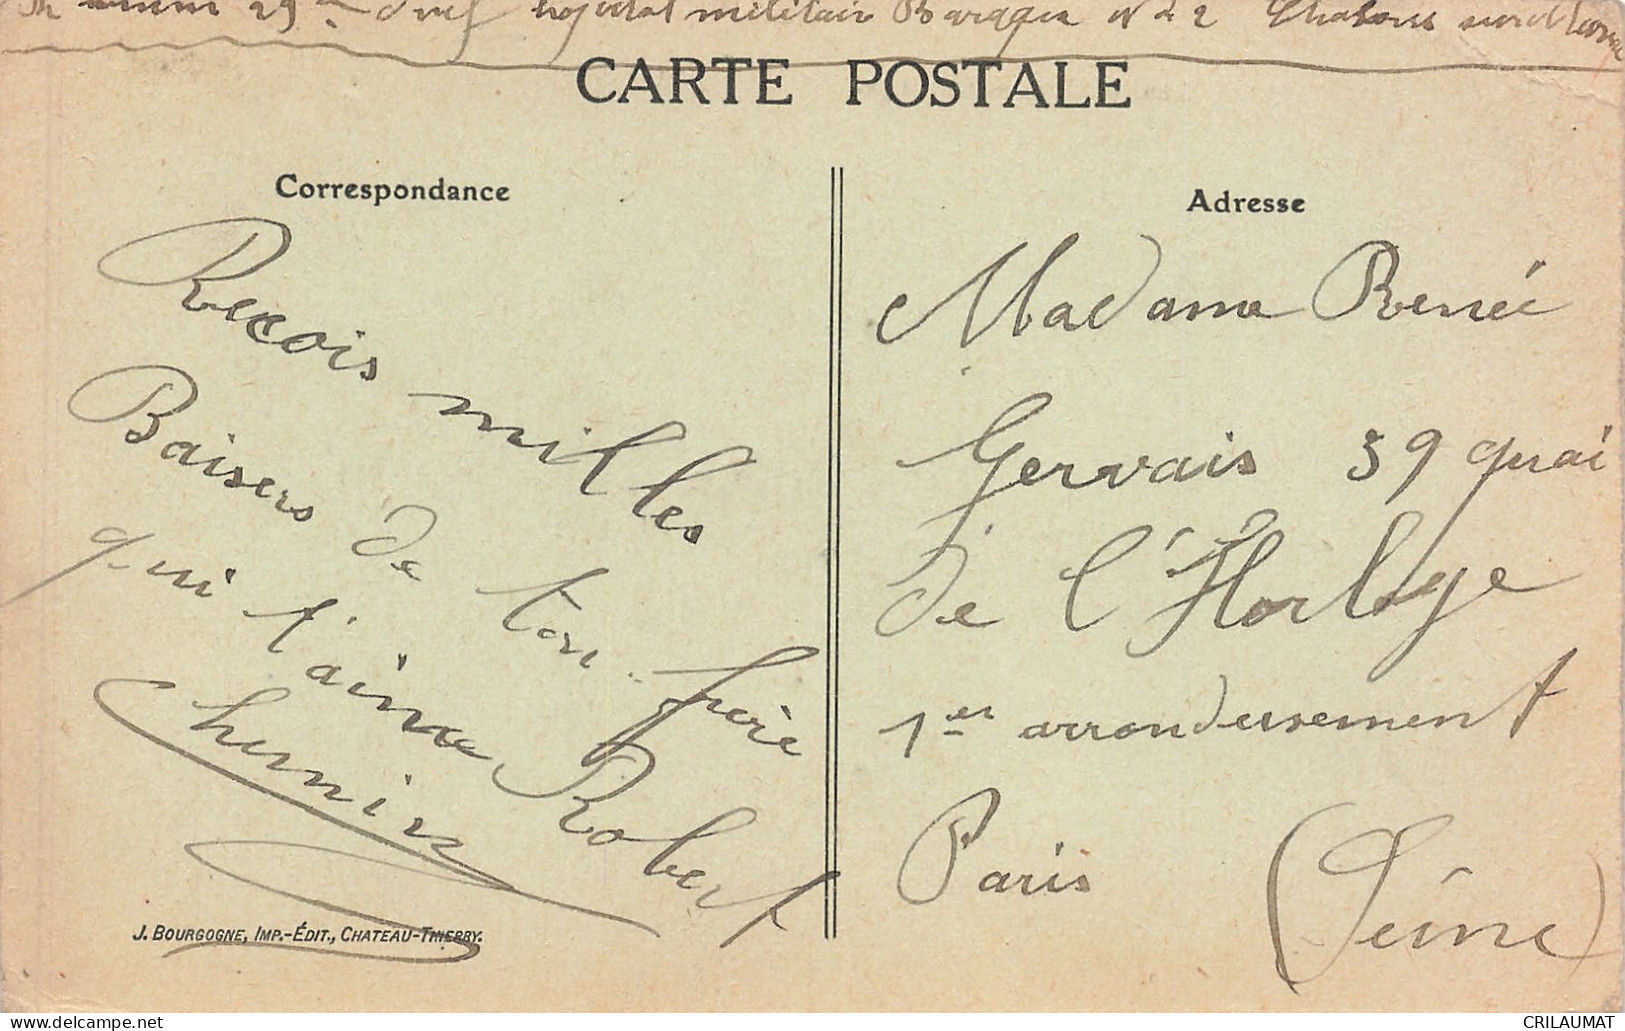 29me hopital militair Baraque No 2 Chalons sur Marne
CARTE POSTALE
Correspondance
Recois milles
Baisers de ton frère
qui t'aime Robert
Chemin
J. BOURGOGNE, IMP.-ÉDIT., CHATEAU-THIERRY.
Adresse
Madame Renée
Gervais 39 quai
de l'Horloge
1er arrondissement
Paris (Seine)
CRILAUMAT
www.delcampe.net